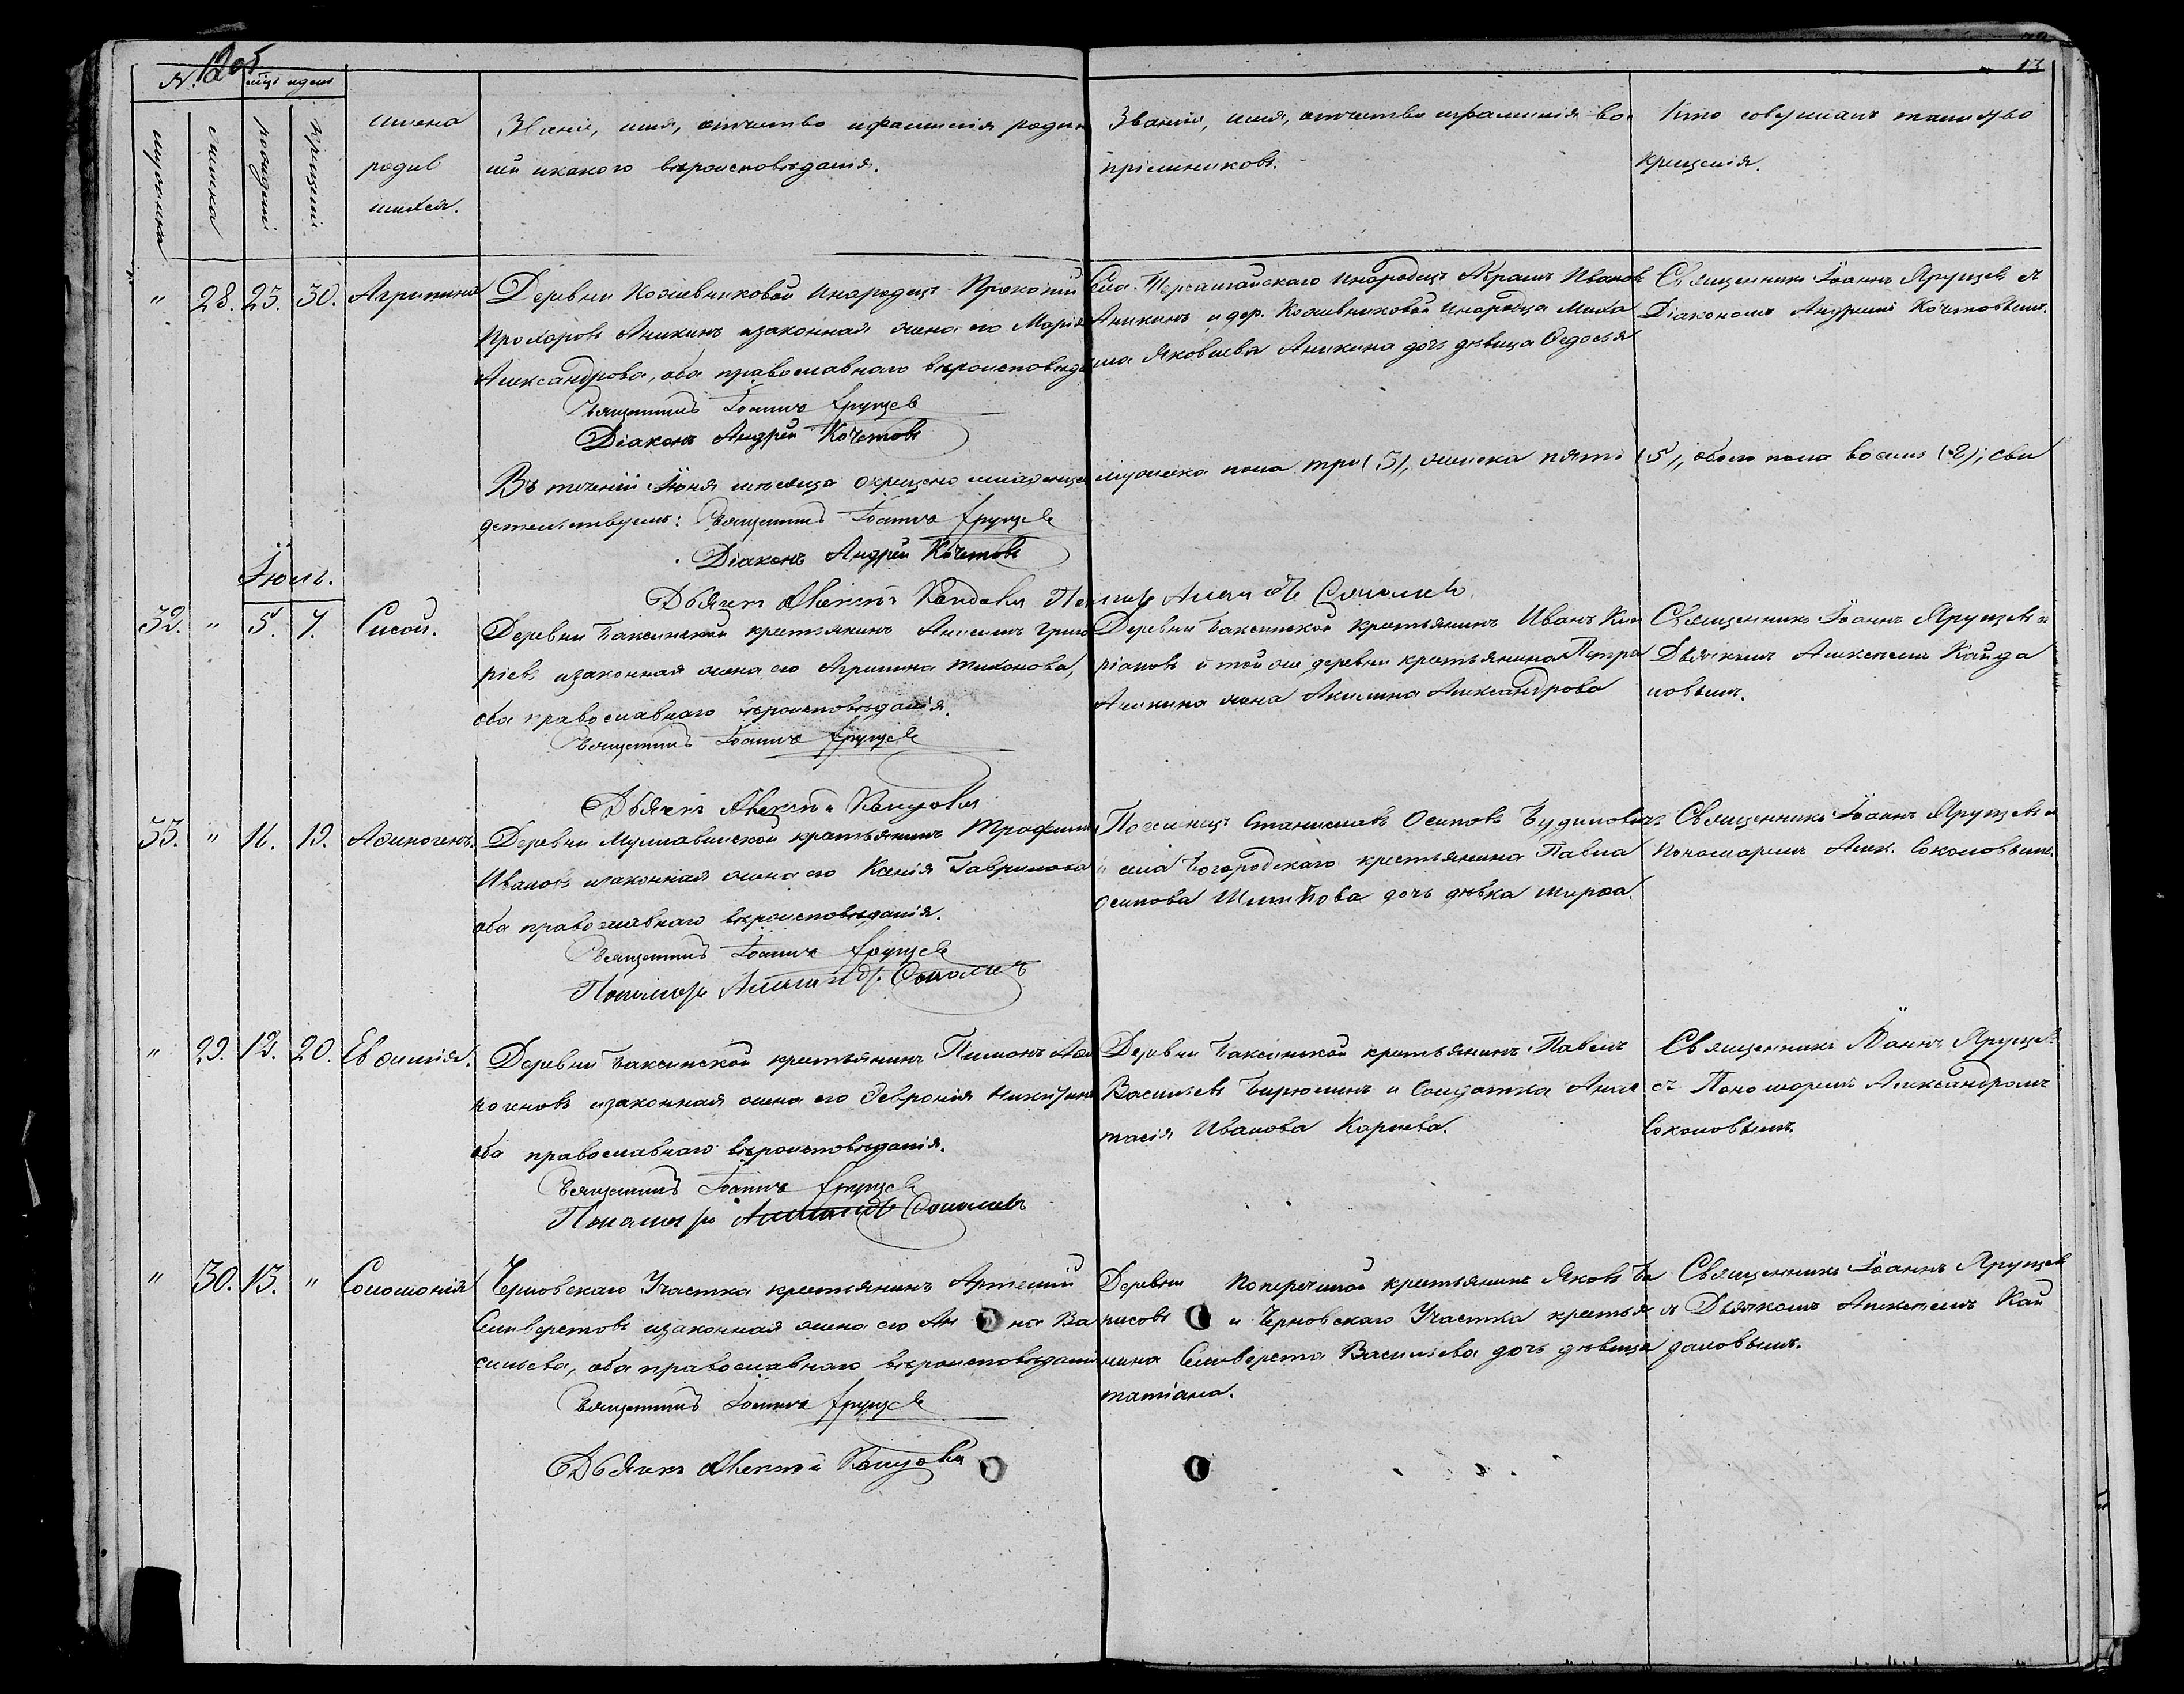 1205
13
№ мцъ и день
мужеска
женска
рожденія
крещенія
имена
родив
шихся.
Званіе, имя, отчество и фамилія родите
лей и какого вѣроисповѣданія.
Званіе, имя, отчество и фамилія вос
пріемниковъ.
Кто совершалъ таинство
крещенія.
" 28. 23. 30. Агрипина
Деревни Кожевниковой Инородецъ Прокопій
Прохоровъ Аникинъ и законная жена его Марія
Александрова, оба православнаго вѣроисповѣда
Священникъ Іоаннъ Ярущев
Діаконъ Андрей Кочетовъ
Села Инородецъ Абрамъ Иванов
Аникинъ и дер. Кожевниковой Инородца Миха
ила Яковлева Аникина дочь дѣвица Ѳедосья
Священникъ Іоаннъ Ярущевъ съ
Діакономъ Андреемъ Кочетовымъ.
Въ теченіи Іюня мѣсяца окрещено младенцевъ мужеска пола три (3), женска пять (5), обоего пола восемь (8), сви
детельствуемъ: Священникъ Іоаннъ Ярущев
Діаконъ Андрей Кочетовъ
Дьячекъ Алексѣй Кайдалов
Іюль.
32. " 5. 7. Сисой.
Деревни Баксинской крестьянинъ Анисимъ Григо
ріевъ и законная жена его Агрипина Тихонова,
оба православнаго вѣроисповѣданія.
Священникъ Іоаннъ Ярущев
Дьячекъ Алексѣй Кайдалов
Деревни Баксинской крестьянинъ Иванъ Кип
ріановъ и той же деревни крестьянина Петра
Аникина жена Акилина Александрова
Священникъ Іоаннъ Ярущевъ съ
Дьячкомъ Алексѣемъ Кайда
ловымъ.
33. " 16. 19. Аѳиногенъ.
Деревни крестьянинъ Трофимъ
Ивановъ и законная жена его Ксенія Гаврилова
оба православнаго вѣроисповѣданія.
Священникъ Іоаннъ Ярущев
Пономарь Александръ Соколовъ
Поселенецъ Станиславъ Осиповъ Будиловичъ
и села Богородскаго крестьянина Павла
Осипова дочь дѣвка Марѳа.
Священникъ Іоаннъ Ярущевъ съ
Пономаремъ Алек. Соколовымъ.
" 29. 18. 20. Евѳимія.
Деревни Баксинской крестьянинъ Пименъ Аѳи
ногеновъ и законная жена его Февронія Никитина
оба православнаго вѣроисповѣданія.
Священникъ Іоаннъ Ярущев
Пономарь Александръ Соколовъ
Деревни Баксинской крестьянинъ Павелъ
Васильевъ Бирюлинъ и Солдатка Анас
тасія Иванова Карпева.
Священникъ Іоаннъ Ярущев
съ Пономаремъ Александромъ
Соколовымъ.
" 30. 13. " Соломонія
Черновскаго Участка крестьянинъ Артемій
Селиверстовъ и законная жена его Ан на Ва
сильева, оба православнаго вѣроисповѣданія
Священникъ Іоаннъ Ярущев
Дьячекъ Алексѣй Кайдалов
Деревни Поперечной крестьянинъ Яковъ Бо
рисовъ и Черновскаго Участка крестья
нина Селиверста Васильева дочь дѣвица
Татіана.
Священникъ Іоаннъ Ярущевъ
съ Дьячкомъ Алексѣемъ Кай
даловымъ.